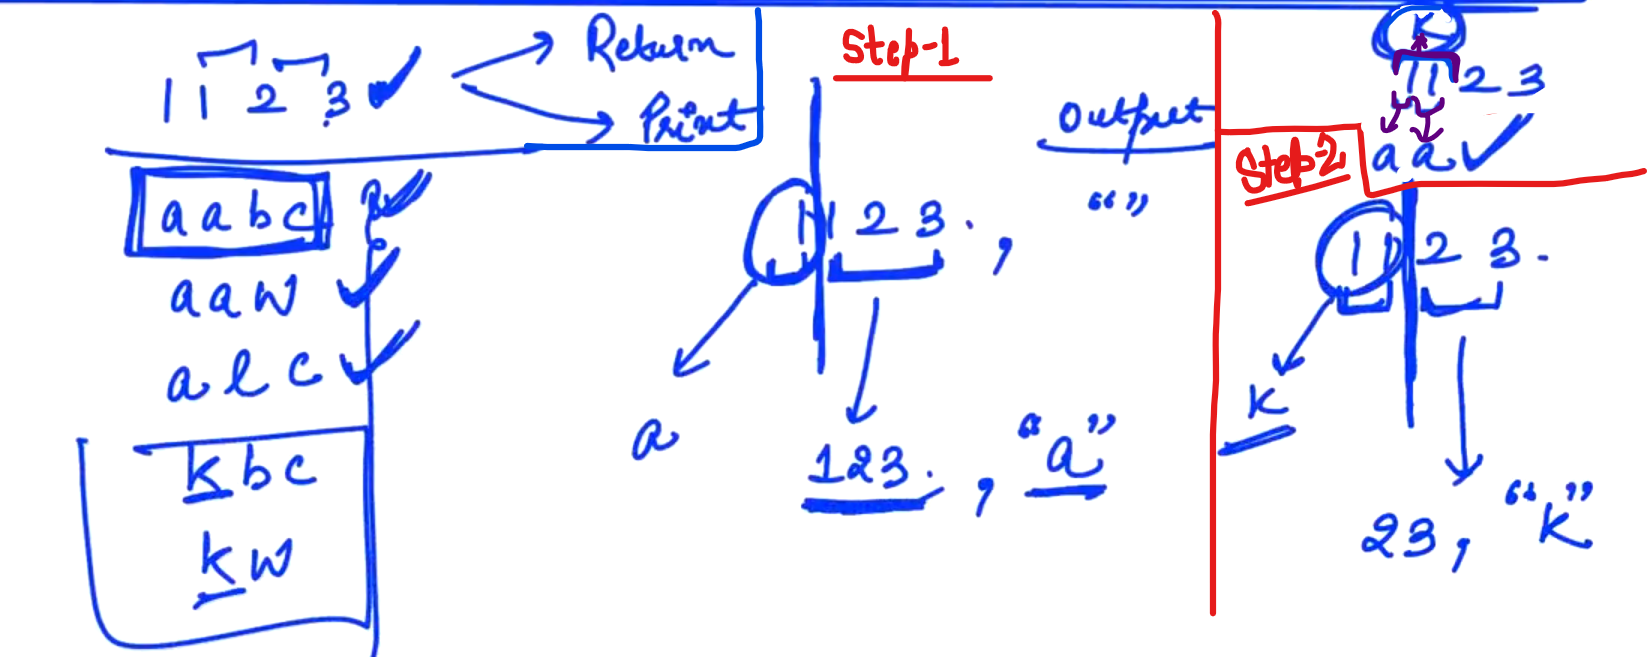 1 1 2 3
Return
Print
a a b c
a a w
a l c
k b c
k w
Step-1
Output
1 1 2 3 . , “ ”
a
123. , “a”
K
1 1 2 3
a a
Step-2
1 1 2 3 .
K
23, “K”